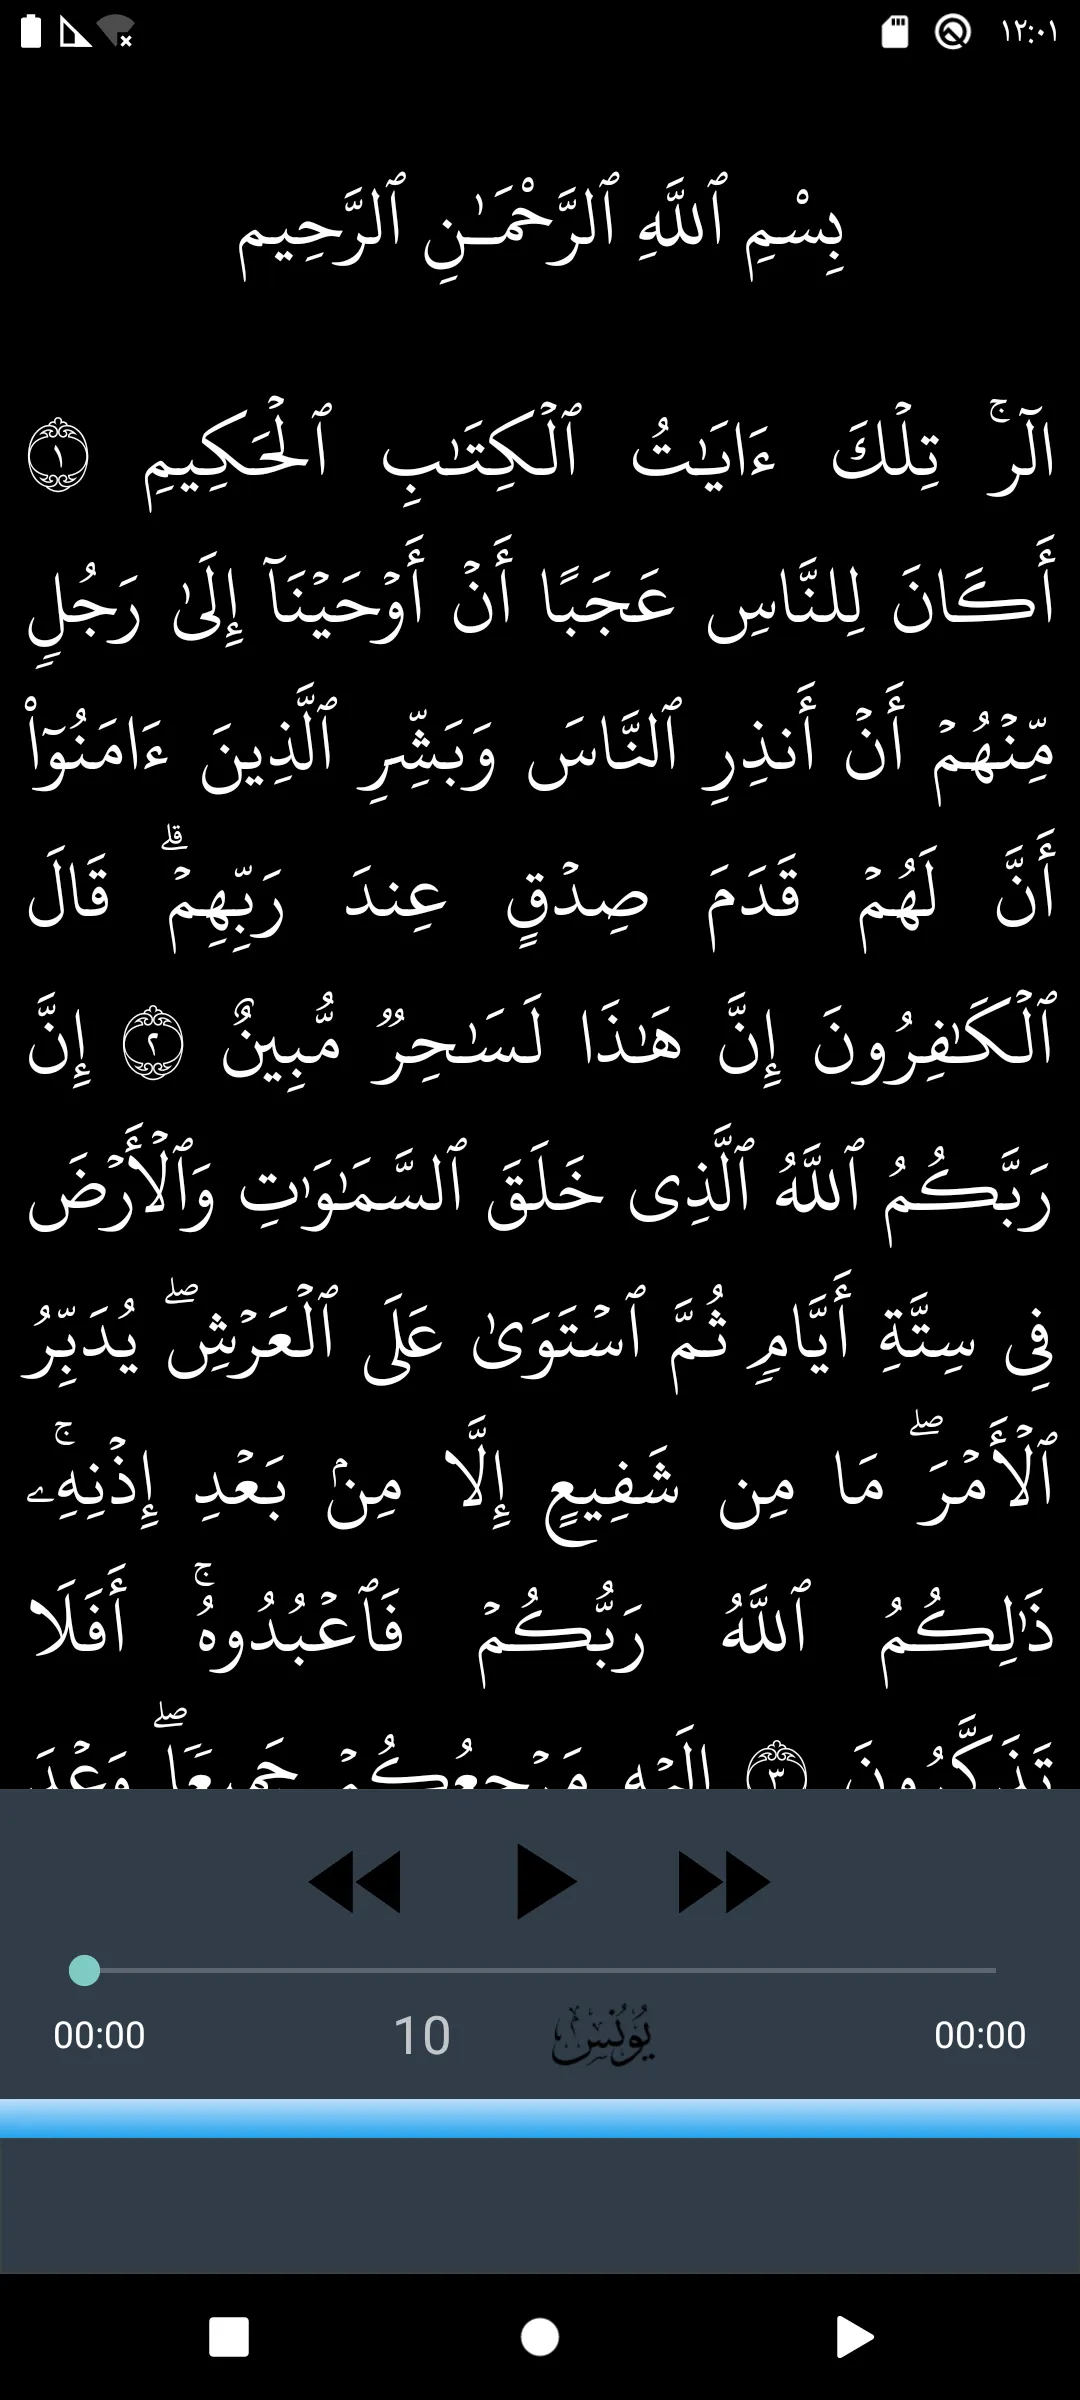 ١٢:٠١
بِسْمِ ٱللَّهِ ٱلرَّحْمَـٰنِ ٱلرَّحِيم
الٓرۚ تِلۡكَ ءَايَـٰتُ ٱلۡكِتَـٰبِ ٱلۡحَكِيمِ ١
أَكَانَ لِلنَّاسِ عَجَبًا أَنۡ أَوۡحَيۡنَآ إِلَىٰ رَجُلٖ
مِّنۡهُمۡ أَنۡ أَنذِرِ ٱلنَّاسَ وَبَشِّرِ ٱلَّذِينَ ءَامَنُوٓاْ
أَنَّ لَهُمۡ قَدَمَ صِدۡقٍ عِندَ رَبِّهِمۡۗ قَالَ
ٱلۡكَـٰفِرُونَ إِنَّ هَـٰذَا لَسَـٰحِرٞ مُّبِينٌ ٢ إِنَّ
رَبَّكُمُ ٱللَّهُ ٱلَّذِى خَلَقَ ٱلسَّمَـٰوَٰتِ وَٱلۡأَرۡضَ
فِى سِتَّةِ أَيَّامٖ ثُمَّ ٱسۡتَوَىٰ عَلَى ٱلۡعَرۡشِۖ يُدَبِّرُ
ٱلۡأَمۡرَۖ مَا مِن شَفِيعٍ إِلَّا مِنۢ بَعۡدِ إِذۡنِهِۦۚ
ذَٰلِكُمُ ٱللَّهُ رَبُّكُمۡ فَٱعۡبُدُوهُۚ أَفَلَا
تَذَكَّرُونَ ٣ إِلَيۡهِ مَرۡجِعُكُمۡ جَمِيعٗاۖ وَعۡدَ
00:00 10 يُونُس 00:00